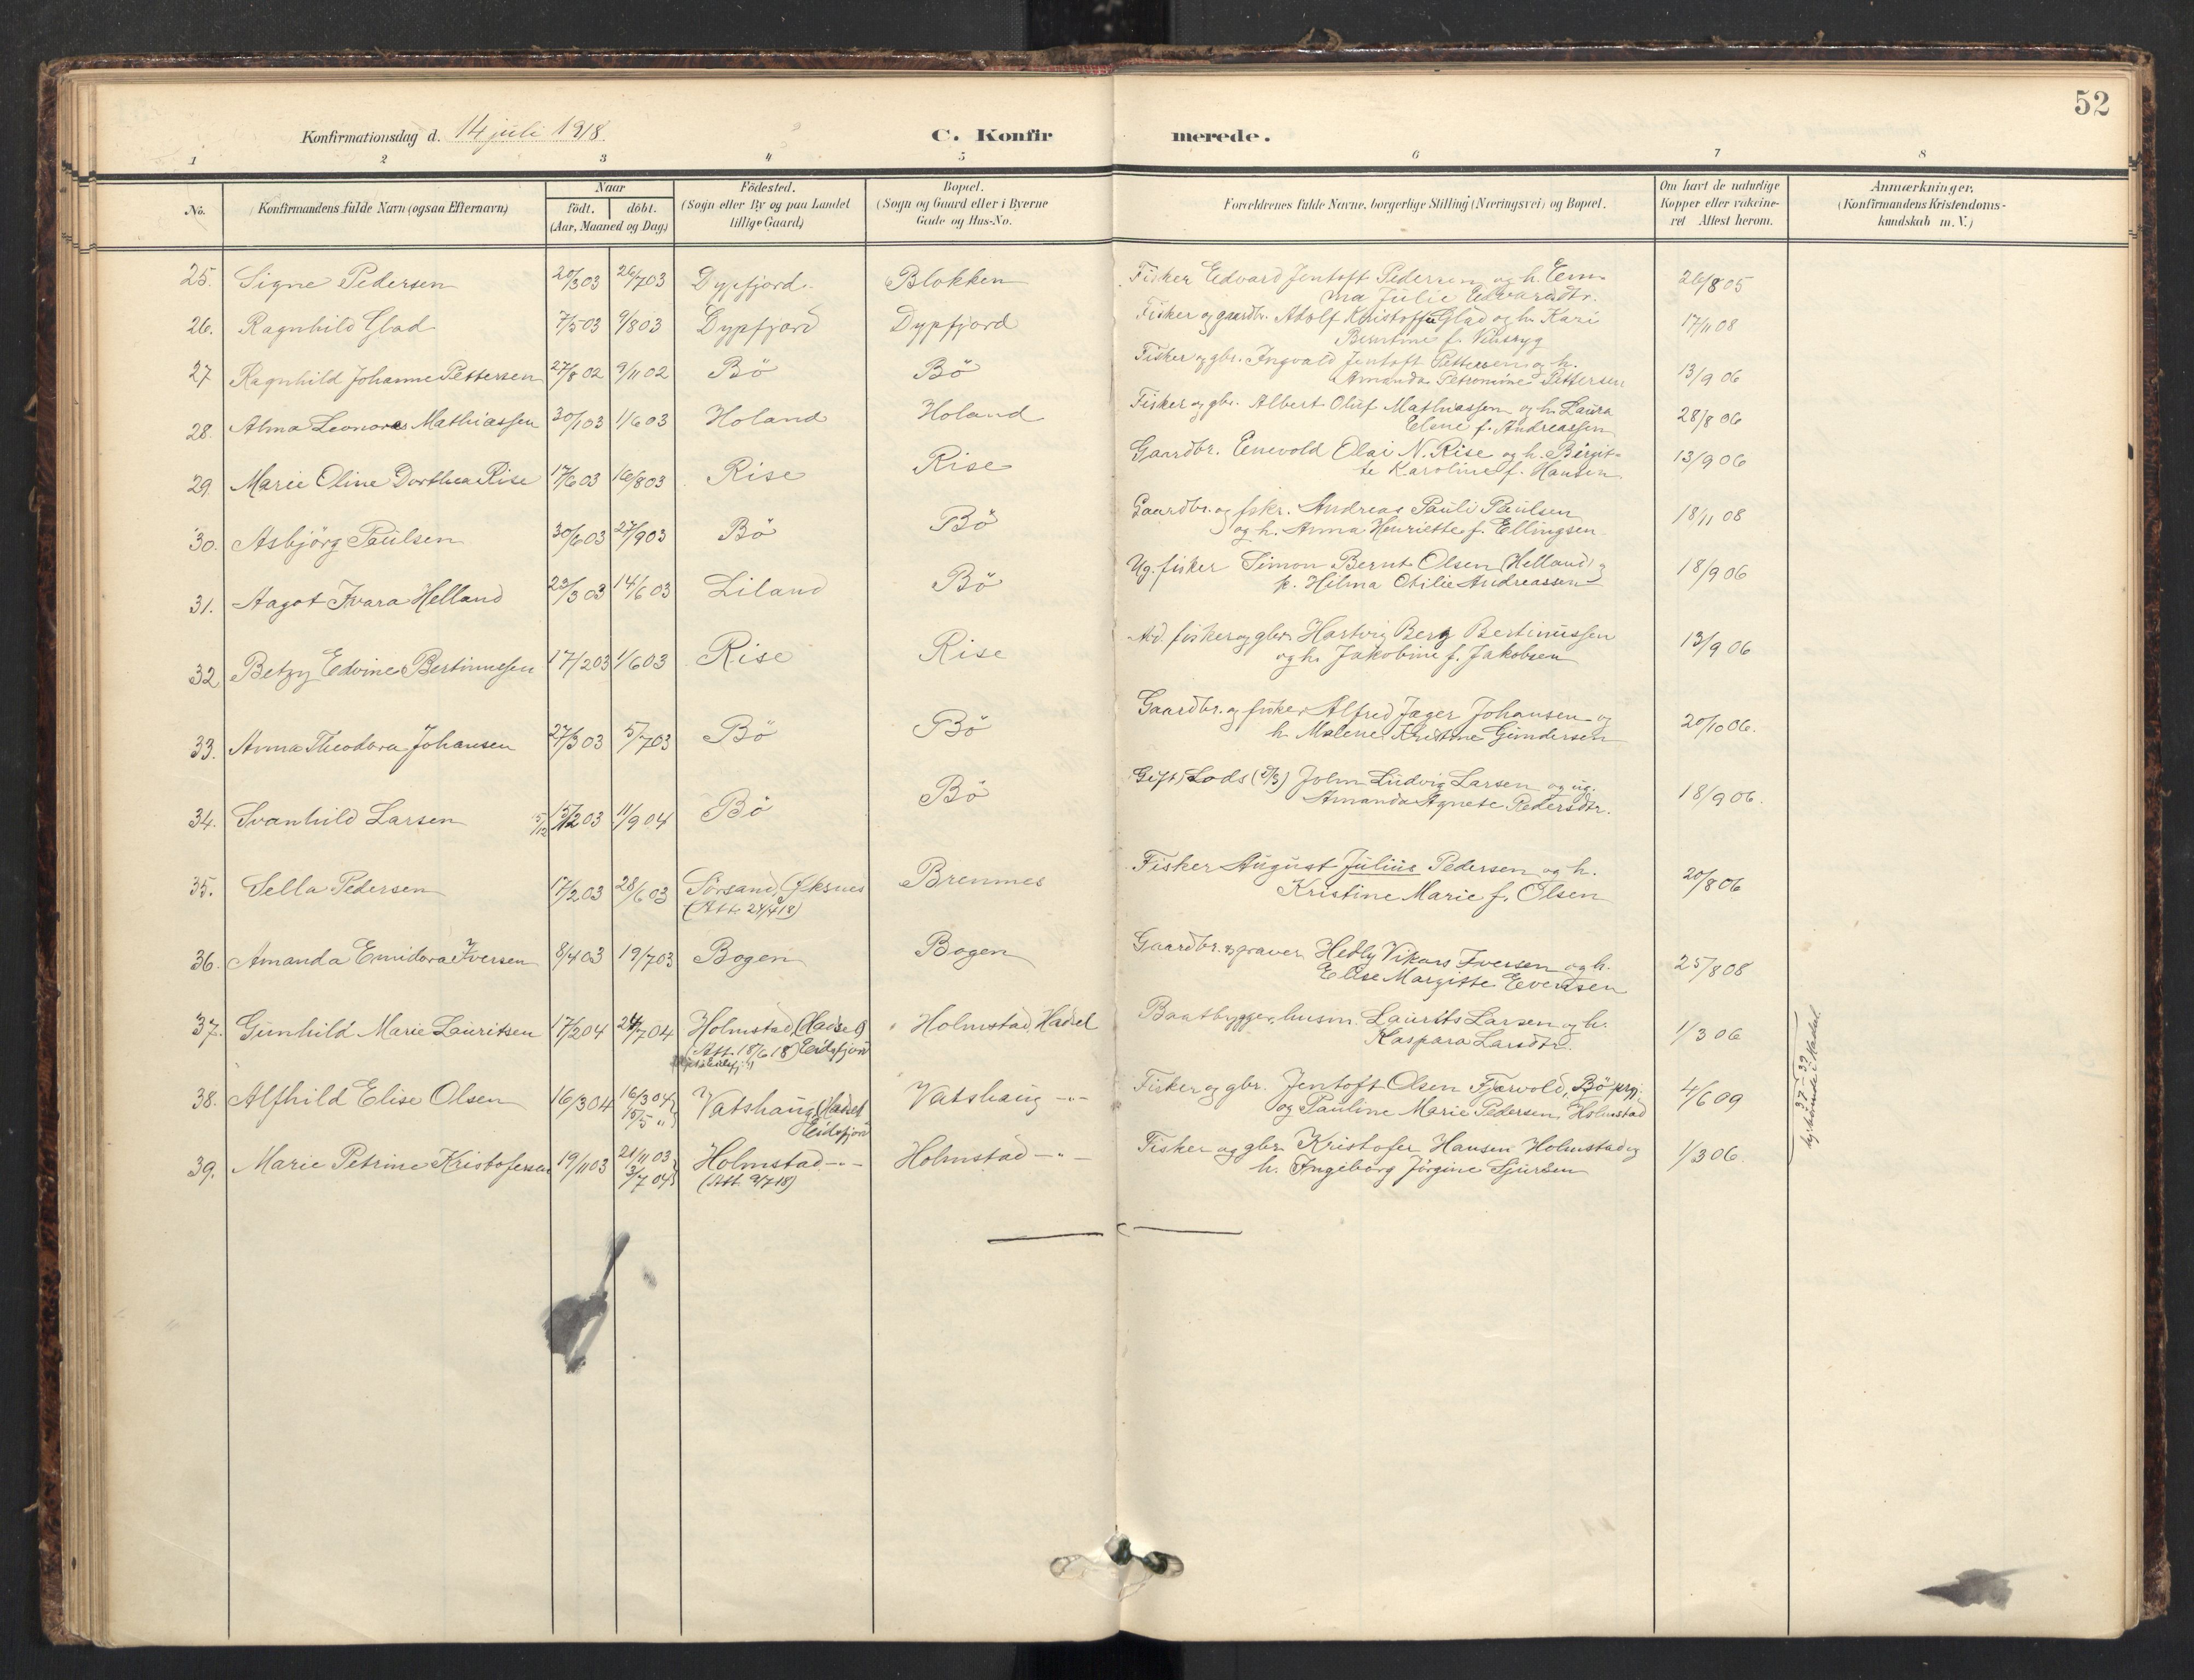 52
Konfirmationsdag d. 14 juli 1918.
C. Konfirmerede.
1 2 3 4 5 6 7 8
No.
Konfirmandens fulde Navn (ogsaa Efternavn)
Naar
født. døbt.
(Aar, Maaned og Dag)
Födested.
(Sogn eller By og paa Landet
tillige Gaard)
Bopæl.
(Sogn og Gaard eller i Byerne
Gade og Hus-No.
Forældrenes fulde Navne, borgerlige Stilling (Næringsvei) og Bopæl.
Om havt de naturlige
Kopper eller vakcine-
ret Attest herom.
Anmærkninger.
(Konfirmandens Kristendoms-
kundskab m. V.)
25. Signe Pedersen 20/3 03 26/7 03 Dypfjord. Blokken Fisker Edvard Jentoft Pedersen og h. Em- 26/8 05
ma Julie Edvardsdtr.
26. Ragnhild Glad 7/5 03 9/8 03 Dypfjord Dypfjord Fisker og gaardbr. Adolf Kristoffer Glad og h. Kari 17/11 08
Berntine f.
27 Ragnhild Johanne Pettersen 27/8 02 9/11 02 Bö Bö Fisker og gbr. Ingvald Jentoft Pettersen og h. 13/9 06
Amanda Petromine Pettersen
28. Alma Leonore Mathiassen 30/1 03 1/6 03 Holand Holand Fisker og gbr. Albert Oluf Mathiassen og h. Laura 28/8 06
Elene f. Andreassen
29. Marie Oline Dorthea Rise 17/6 03 16/8 03 Rise Rise Gaardbr. Enevold Olai N. Rise og h. Birgit- 13/9 06
te Karoline f. Hansen
30. Asbjörg Paulsen 30/6 03 27/9 03 Bö Bö Gaardbr. og fskr. Andreas Pauli Paulsen 18/11 08
og h. Anna Henriette f. Ellingsen
31. Aagot Ivara Helland 22/3 03 14/6 03 Liland Bö Ug. fisker Simon Bernt Olsen (Helland) og 18/9 06
p. Hilma Otilie Andreassen
32. Betzy Edvine Bertinussen 17/2 03 1/6 03 Rise Rise fisker og gbr. Hartvig Berg Bertinussen 13/9 06
og h. Jakobine f. Jakobsen
33. Anna Theodora Johansen 27/3 03 5/7 03 Bö Bö Gaardbr. og fisker Alfred Jæger Johansen og 20/10 06.
h. Malene Kristine Gundersen
34. Svanhild Larsen 5/12 15/12 03 11/9 04 Bö Bö Gift Lods John Ludvig Larsen og ug. 18/9 06.
Amanda Agnete Pedersdtr.
35. Sella Pedersen 17/2 03 28/6 03 Sörsand, Øksnes Brennes Fisker August Julius Pedersen og h. 20/8 06
(Att. 24/4 18) Kristine Marie f. Olsen
36. Amanda Emidora Iversen 8/4 03 19/7 03 Bogen Bogen Gaardbr. og graver Hetly Vikars Iversen og h. 25/8 08
Elise Margitte Evensen
37. Gunhild Marie Lauritsen 17/2 04 24/7 04 Holmstad (Hadsel) Holmstad, Hadsel Baatbygger, husm. Laurits Larsen og h. 1/3 06
(Att. 18/6 18) Eidsfjord Kaspara Larsdtr.
38. Alfhild Elise Olsen 16/3 04 16/3 04 Vatshaug (Hadsel Vatshaug -"- Fisker og gbr. Jentoft Olsen Fjærvold, Bö prgj. 4/6 09
15/5 " Eidsfjord og Pauline Marie Pedersen, Holmstad
39. Marie Petrine Kristofersen 19/11 03 21/11 03 Holmstad -"- Holmstad -"- Fisker og gbr. Kristofer Hansen Holmstad og 1/3 06
3/7 04 (Att. 9/7 18) h. Ingeborg Jörgine Sjursen
37-39